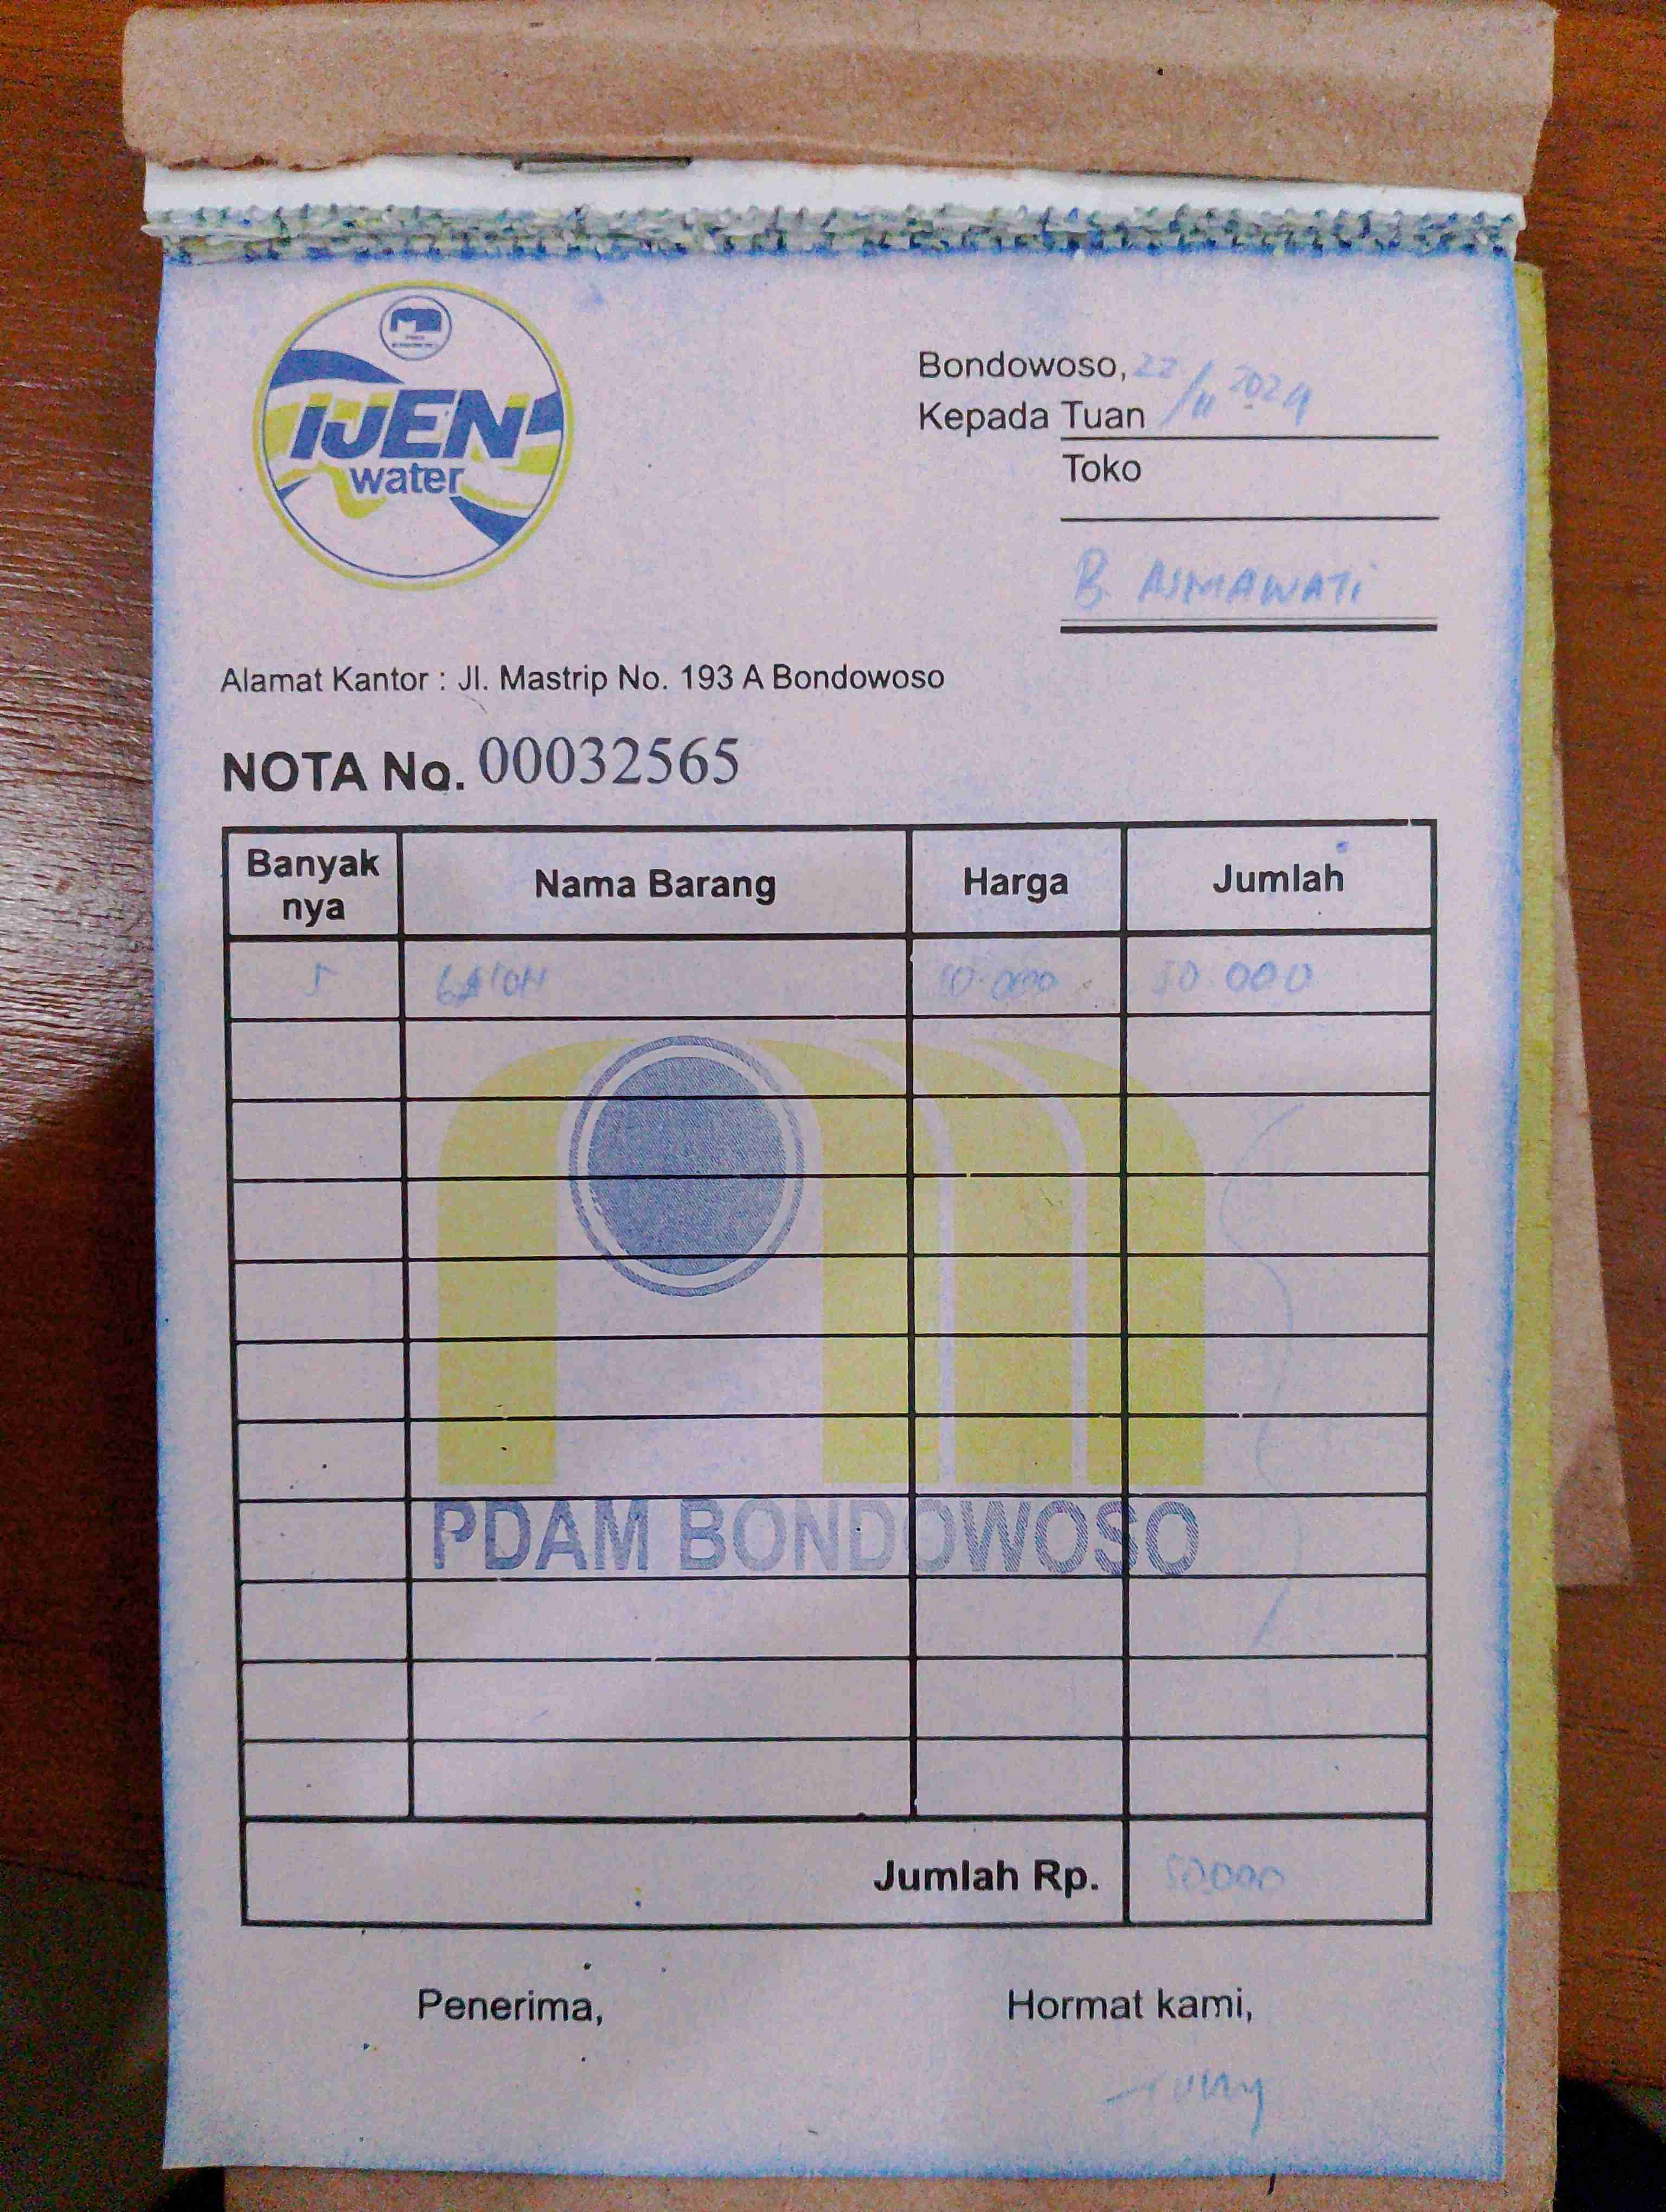 IJEN
water
Bondowoso, 22/11 2024
Kepada Tuan
Toko
B. ASMAWATI
Alamat Kantor : Jl. Mastrip No. 193 A Bondowoso
NOTA No. 00032565
Banyak nya Nama Barang Harga Jumlah
5 GALON 10.000 50.000
PDAM BONDOWOSO
Jumlah Rp. 50.000
Penerima, Hormat kami,